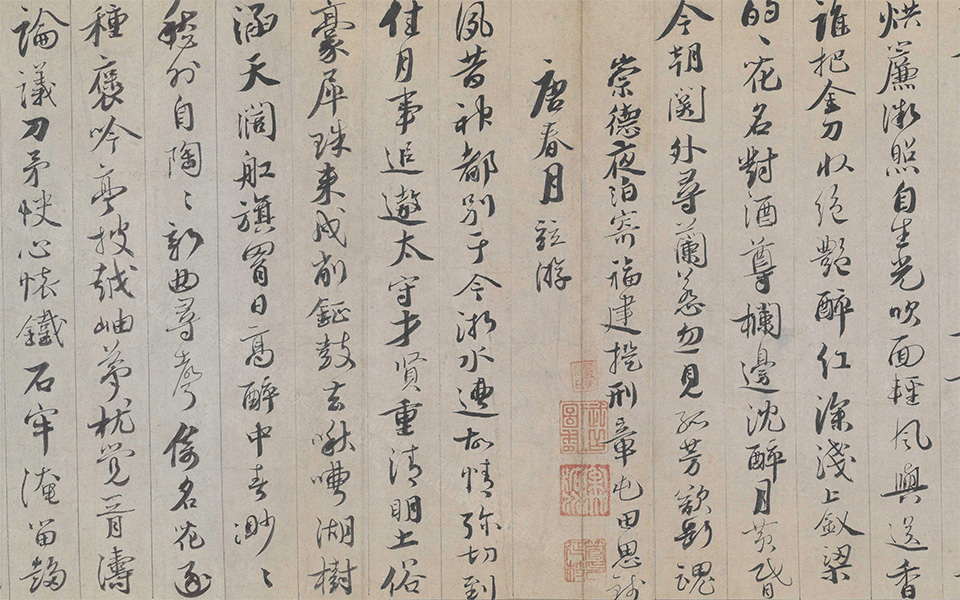 烘簾微照自生光吹面輕風與送香
誰把金刀收絕艷醉紅深淺上釵梁
的々花名對酒尊欄邊沈醉月黃昏
今朝關外尋蘭蕊忽一見孤芳欲斷魂
崇德夜泊寄福建提刑章屯田思錢
唐春月並游
夙昔神都別于今浙水遭故情弥切到
佳月事追遨太守才賢重清明土俗
豪犀珠來戍削鉦鼓去啾嘈湖樹
涵天濶舡旗冒日高醉中春渺々
愁外自陶々新曲尋聲倚名花逐
種褒吟亭披越岫夢枕覺胥濤
論議刀矛快心懷鐵石牢淹留